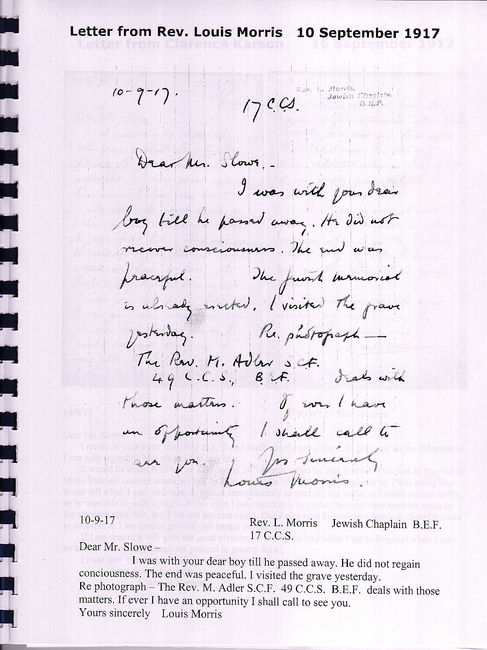 Letter from Rev. Louis Morris   10 September 1917
10-9-17.
Rev. L. Morris
Jewish Chaplain
B.E.F.
17 C.C.S.
Dear Mr. Slowe,-
I was with your dear
boy till he passed away. He did not
recover consciousness. The end was
peaceful. The Jewish memorial
is already erected. I visited the grave
yesterday. Re. photograph —
The Rev. M. Adler S.C.F.
49 C.C.S., B.E.F. deals with
those matters. If ever I have
an opportunity I shall call to
see you. Yrs sincerely
Louis Morris.
10-9-17   Rev. L. Morris   Jewish Chaplain  B.E.F.
17 C.C.S.
Dear Mr. Slowe –
I was with your dear boy till he passed away. He did not regain
conciousness. The end was peaceful. I visited the grave yesterday.
Re photograph – The Rev. M. Adler S.C.F.  49 C.C.S.  B.E.F.  deals with those
matters. If ever I have an opportunity I shall call to see you.
Yours sincerely   Louis Morris